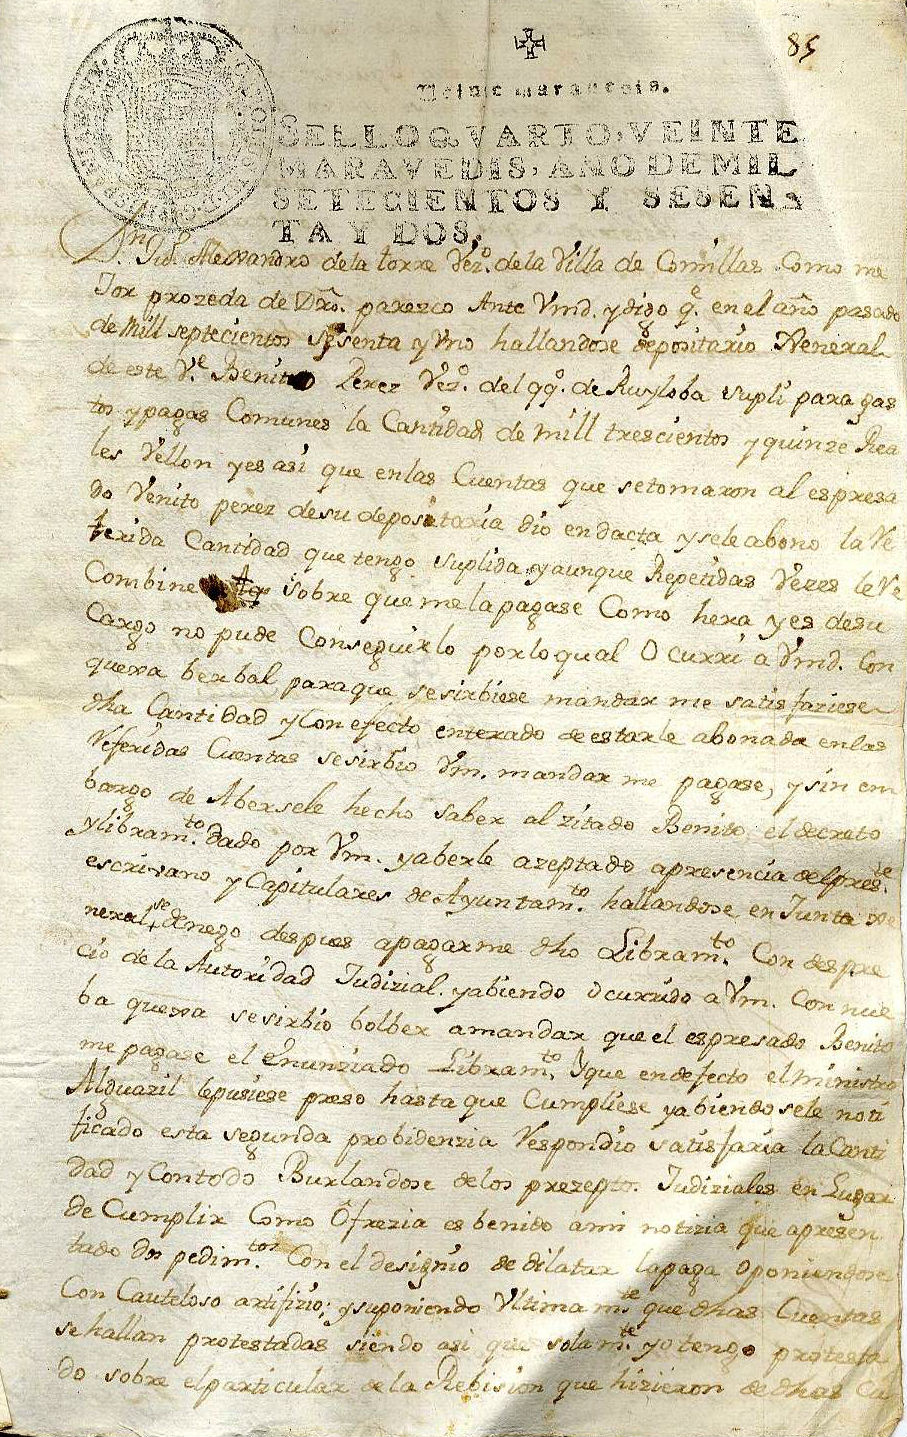 85
Veinte maravedis.
SELLO QVARTO, VEINTE
MARAVEDIS, AÑO DE MIL
SETECIENTOS Y SESEN-
TA Y DOS.
Dn Juo. Alexandro de la torre Vezo. de la Villa de Comillas Como me
Jor prozeda de Dro. parezco Ante Vmd. y digo q. en el año pasado
de Mill septecientos sesenta y Uno hallandose depositario General
de este Ve. Benito Perez Vezo. del qqo. de Ruyloba supli para gas
tos y pagas Comunes la Cantidad de mill trescientos y quinze Rea
les Vellon y es asi que en las Cuentas que se tomaron al espresa
do Venito perez de su depositaria dio en dacta y se le abono la Re
ferida Cantidad que tengo suplida, y aunque Repetidas Vezes le Re
Combine sobre que me la pagase Como hera y es de su
Cargo no pude Conseguirlo por lo qual Ocurri a Vmd. Con
quexa berbal para que se sirbiese mandar me satisfaziese
dha Cantidad y Con efecto enterado de estarle abonada en las
Referidas Cuentas se sirbio Vm. mandar me pagase, y sin em
bargo de Abersele hecho saber al zitado Benito el decreto
y libramto. dado por Vm. y aberle azeptado a presencia del preste.
escrivano y Capitulares de Ayuntamto. hallandose en Junta Ge
neral, se denego despues a pagarme dho Libramto. Con despre
cio de la Autoridad Judizial. y abiendo Ocurrido a Vm. Con nue
ba quexa se sirbio bolber a mandar que el espresado Benito
me pagase el Enunziado Libramto. Y que en defecto el ministro
Alguazil le pusiese preso hasta que Cumpliese y abiendosele noti
ficado esta segunda probidenzia Respondio satisfaria la Canti
dad y Con todo Burlandose de los prezeptos Judiziales en Lugar
de Cumplir Como Ofrezia es benido a mi notizia que a presen
tado dos pedimtos. Con el designio de dilatar la paga Oponiendose
Con Cauteloso artifizio; y suponiendo Ultimamte. que dhas Cuentas
se hallan protestadas siendo asi que solamte. yo tengo protesta
do sobre el particular de la Rebision que hizieron de dhas Cu